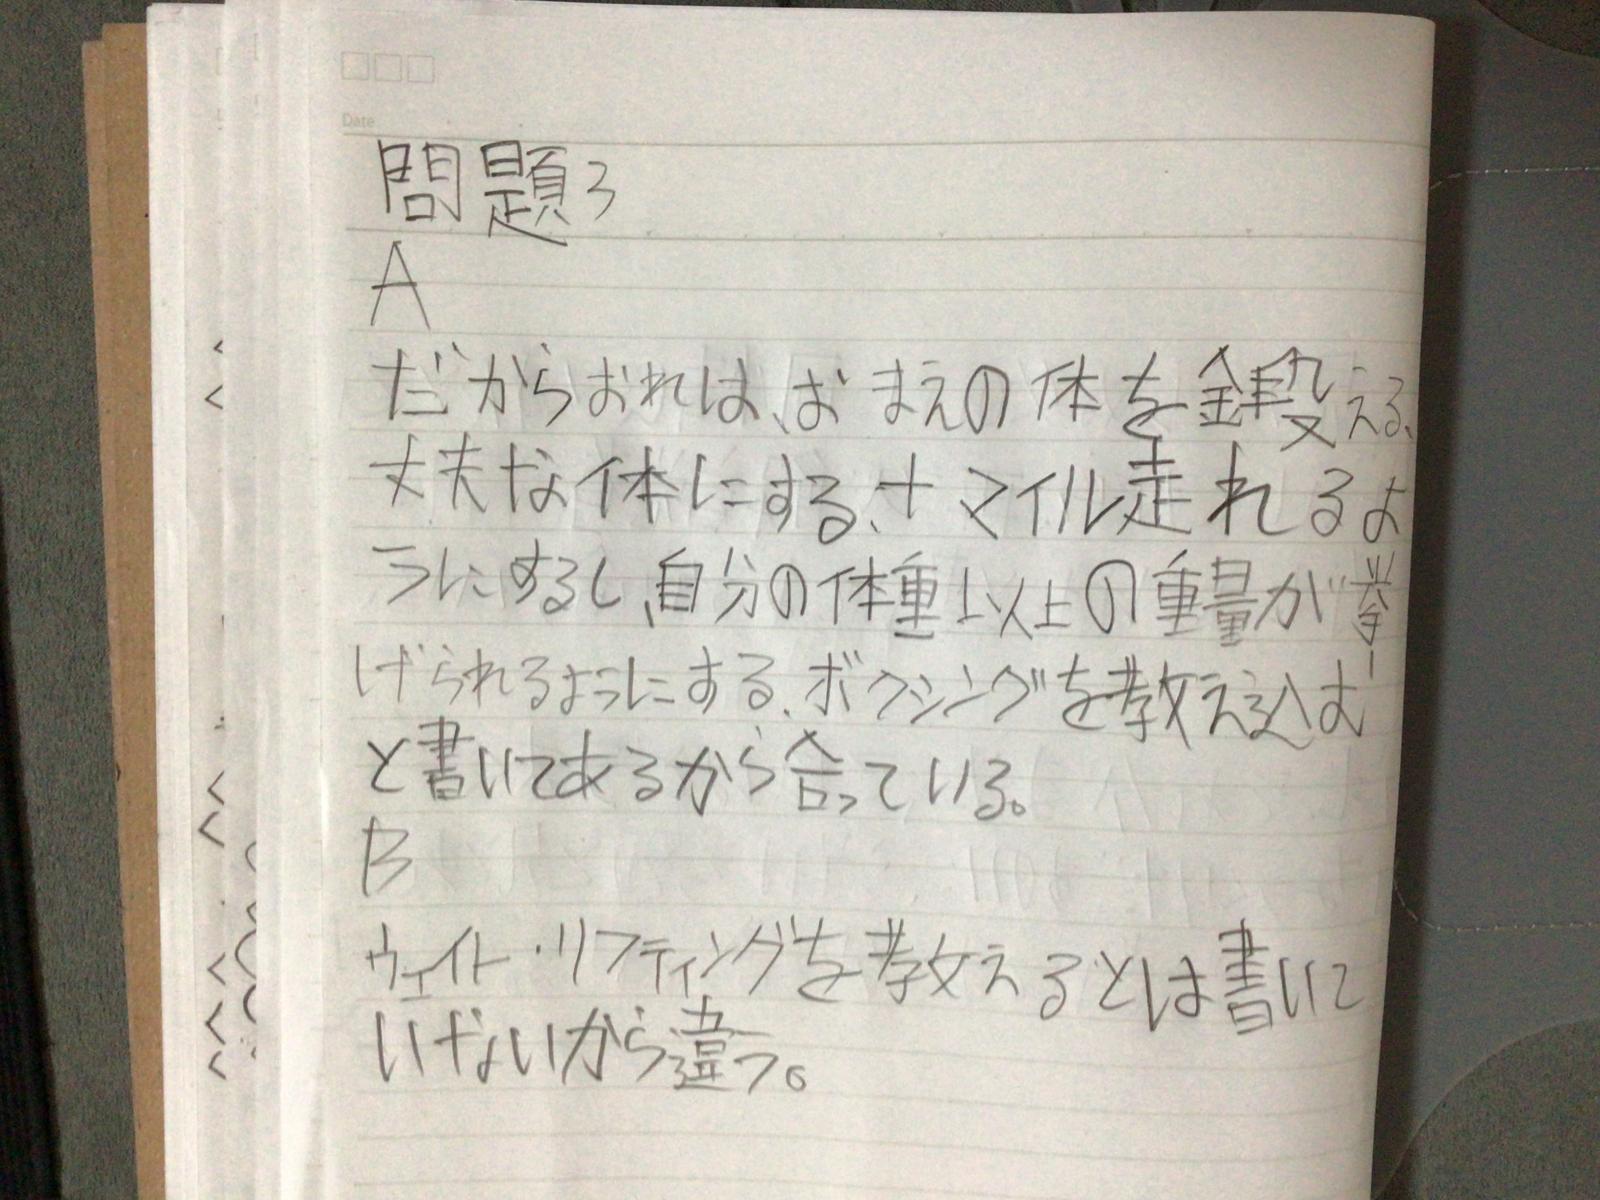 Date
問題3
A
だからおれは、おまえの体を鍛える、
丈夫な体にする、十マイル走れるよ
うにするし、自分の体重以上の重量が挙
げられるようにする、ボクシングを教え込む
と書いてあるから合っている。
B
ウェイト・リフティングを教えるとは書いて
いないから違う。